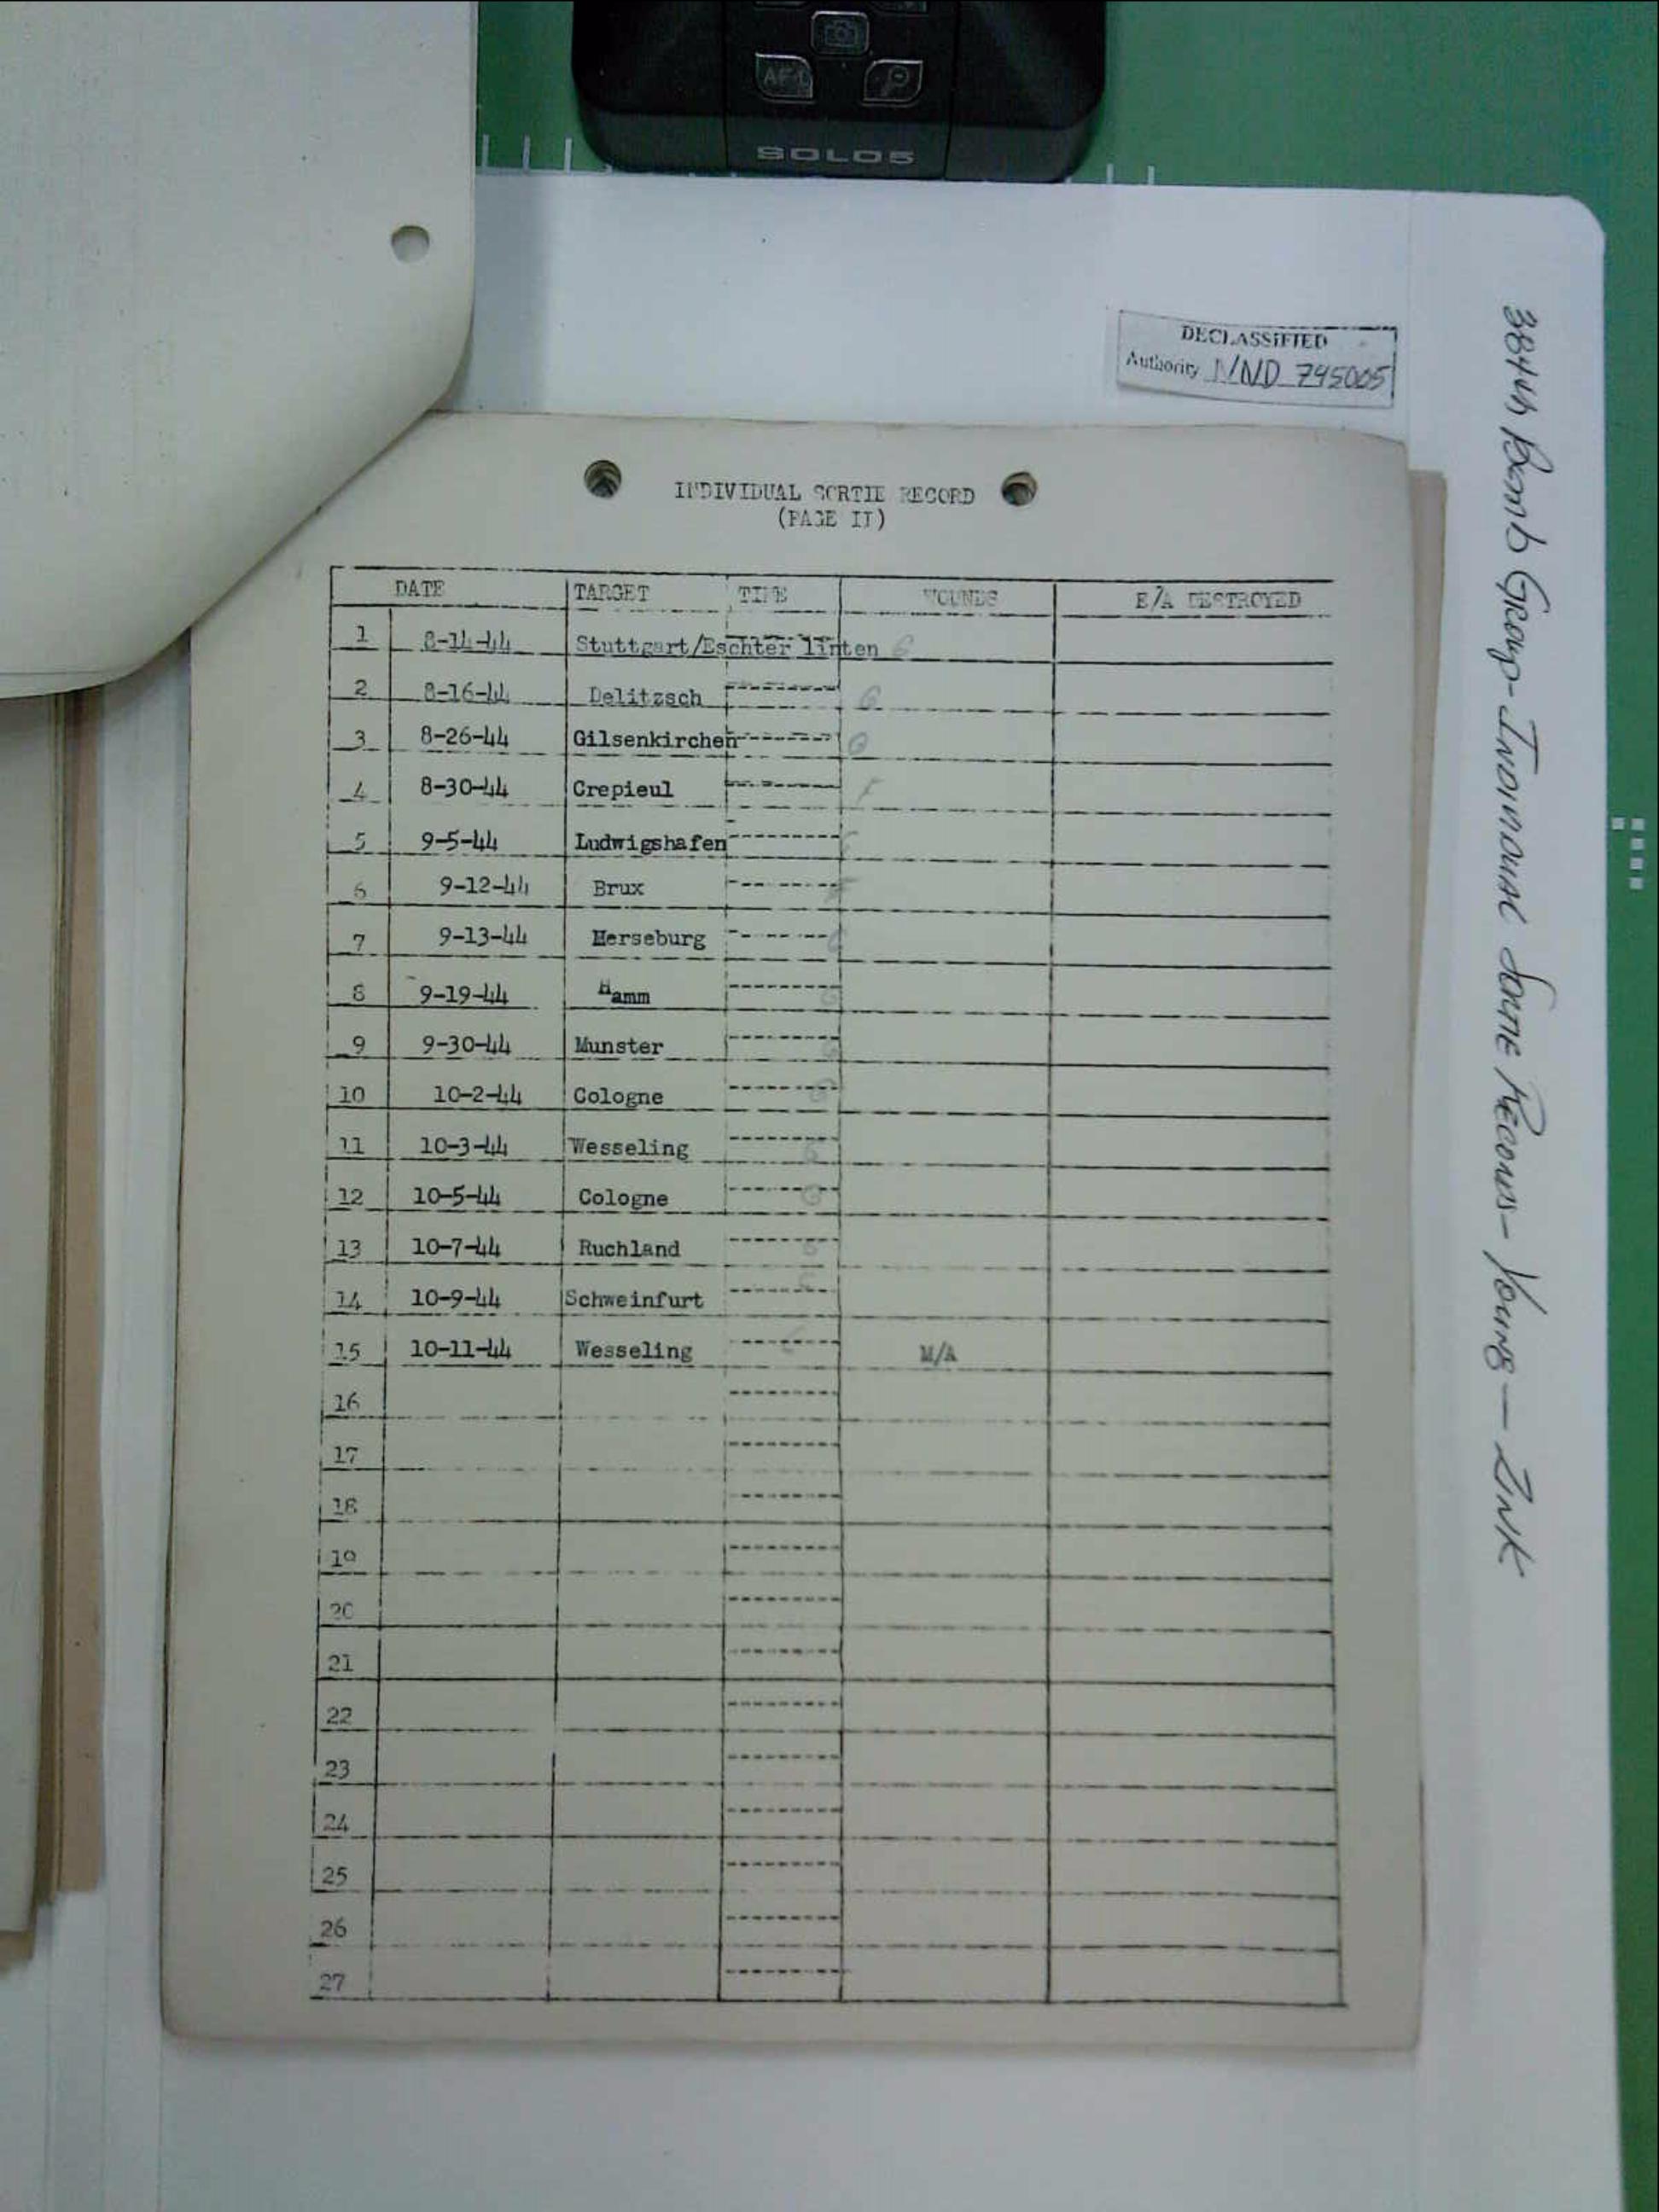 AF-L
SOLO5
DECLASSIFIED
Authority NND 745005
384th Bomb Group - Individual Sortie Records - Young - Zink
INDIVIDUAL SORTIE RECORD
(PAGE II)
DATE TARGET TIME WOUNDS E/A DESTROYED
1 8-14-44 Stuttgart/Eschter linten G
2 8-16-44 Delitzsch G
3 8-26-44 Gilsenkirchen G
4 8-30-44 Crepieul F
5 9-5-44 Ludwigshafen
6 9-12-44 Brux
7 9-13-44 Merseburg
8 9-19-44 Hamm G
9 9-30-44 Munster G
10 10-2-44 Cologne G
11 10-3-44 Wesseling G
12 10-5-44 Cologne G
13 10-7-44 Ruchland G
14 10-9-44 Schweinfurt
15 10-11-44 Wesseling M/A
16
17
18
19
20
21
22
23
24
25
26
27